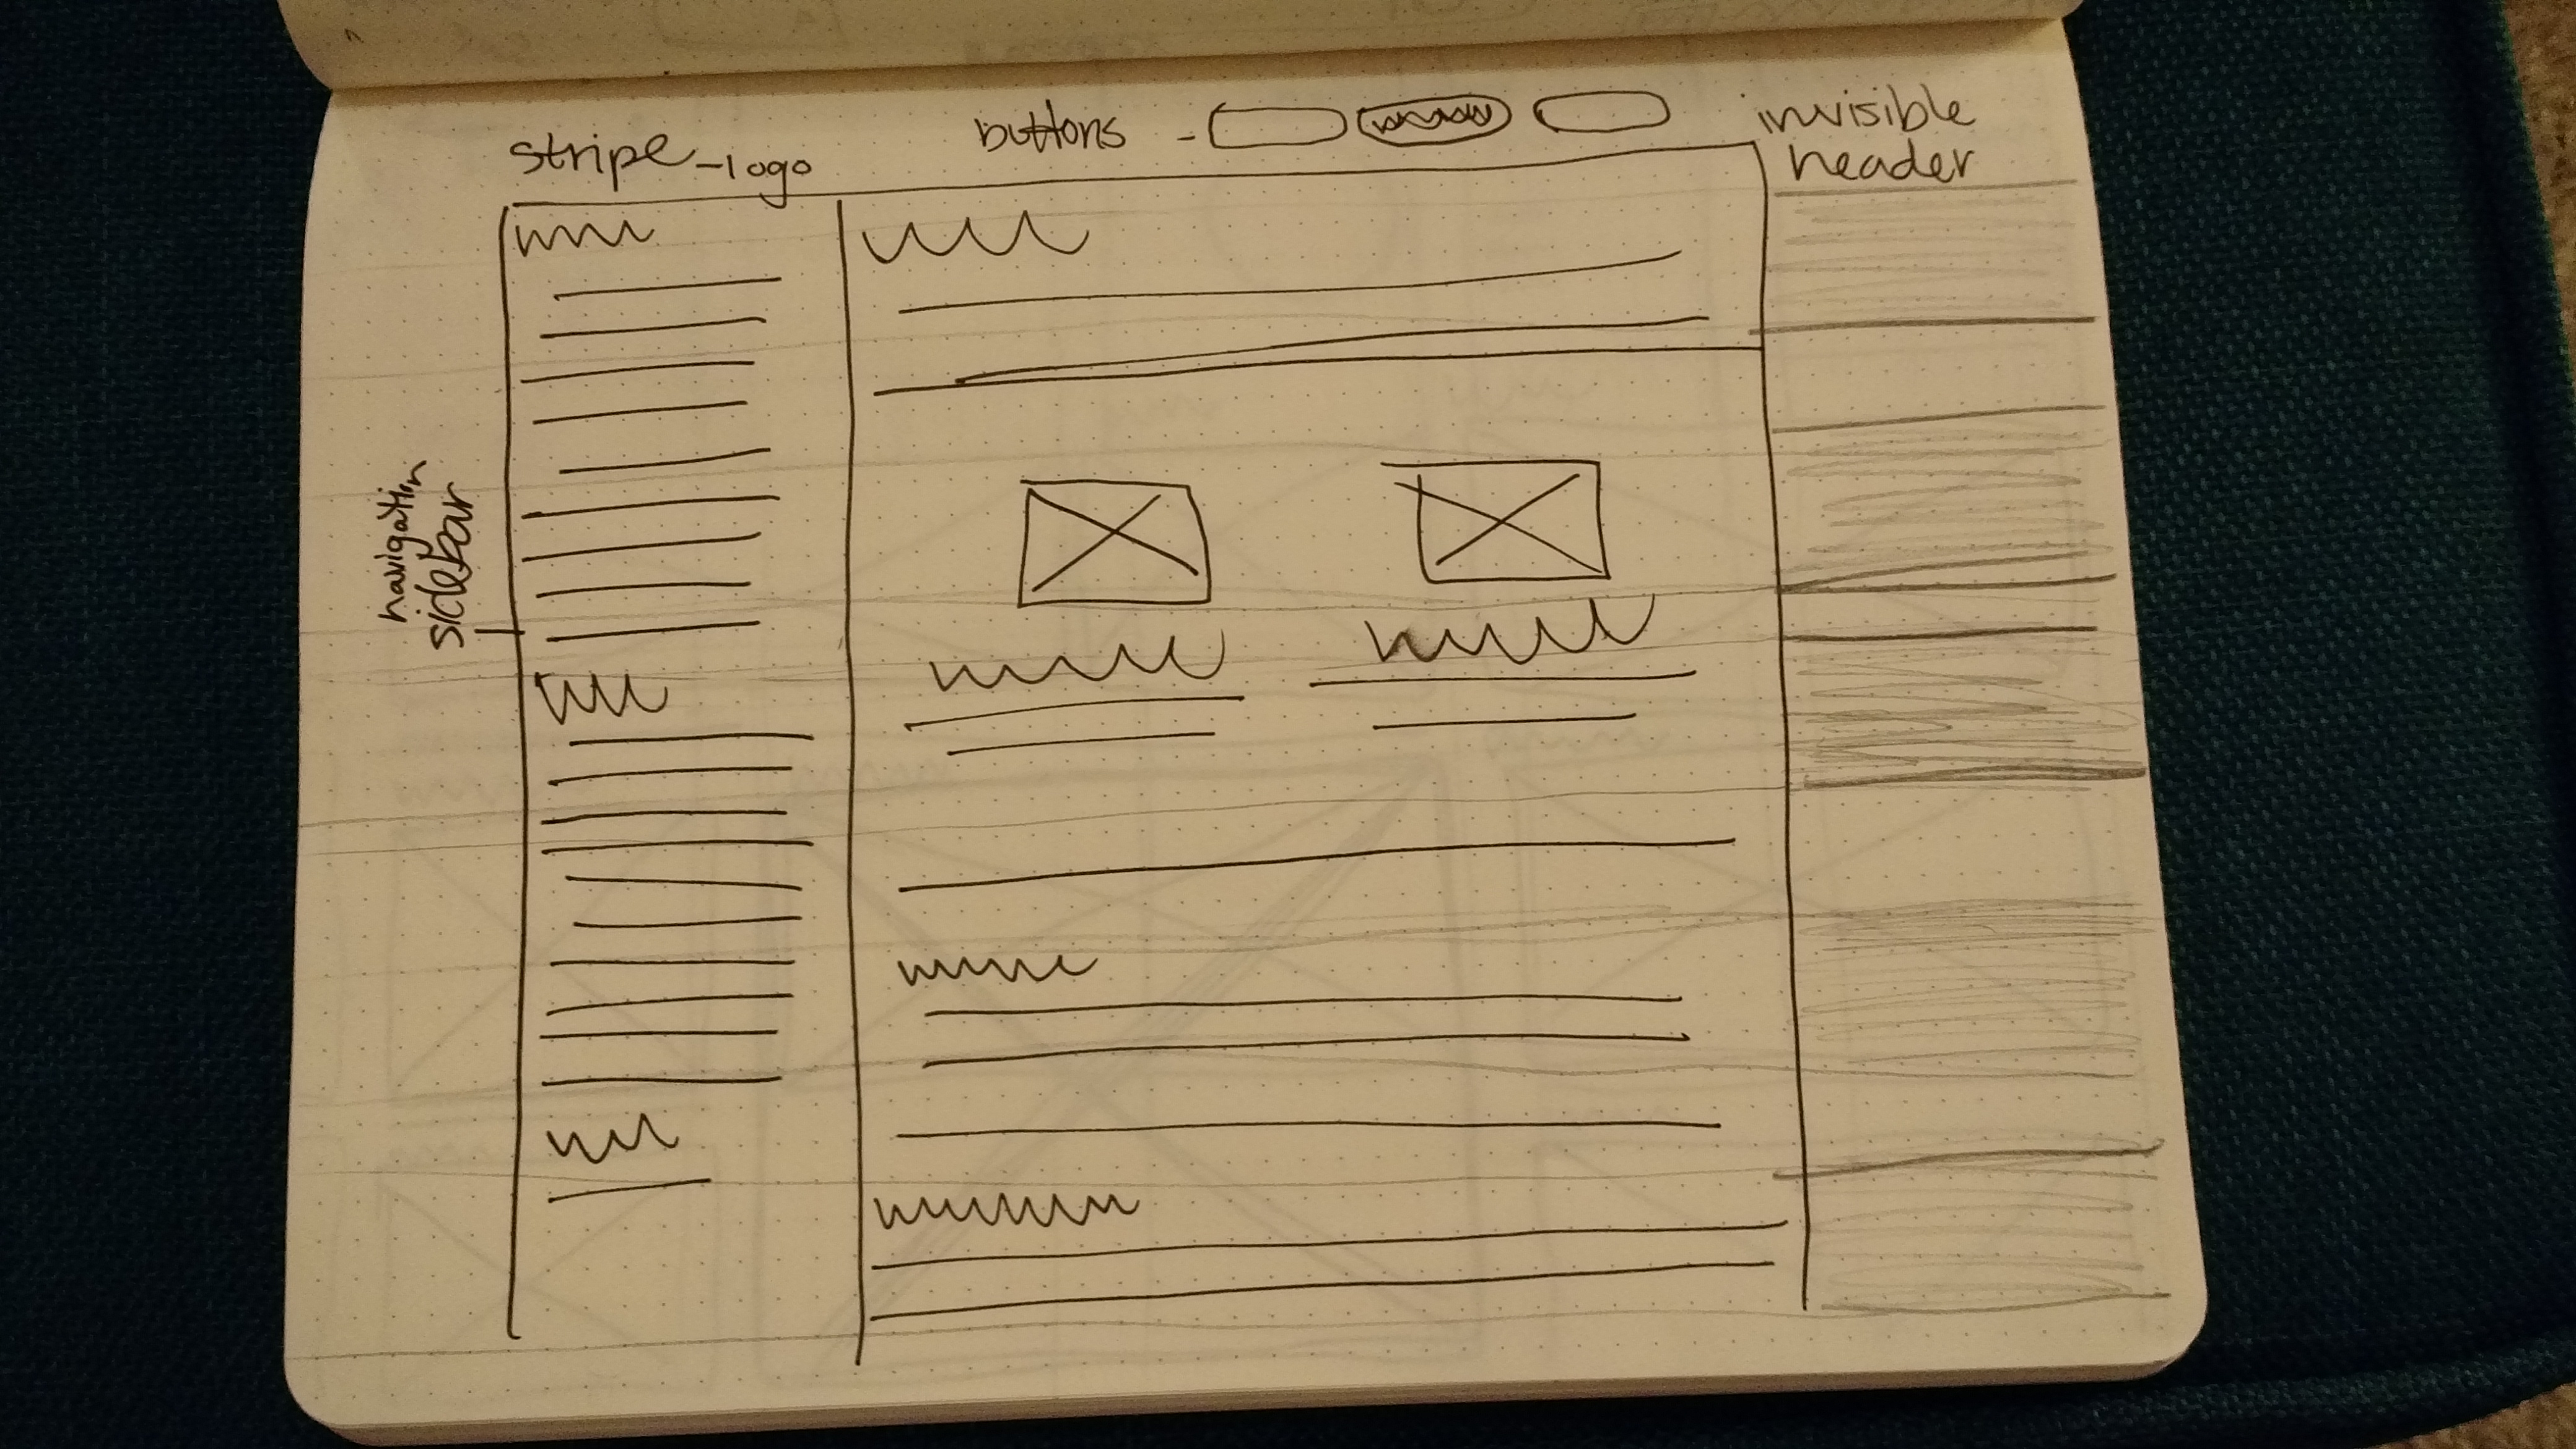 stripe - logo
buttons -
invisible
header
navigatin
sidebar